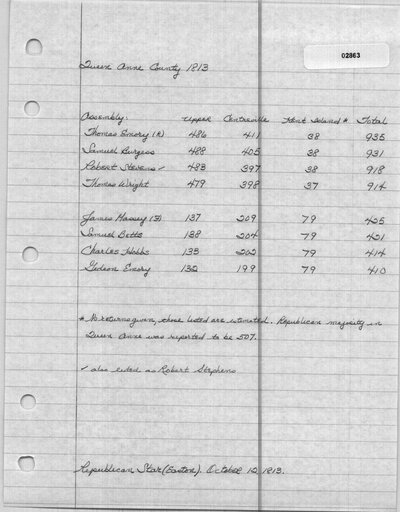 02863
Queen Anne County 1813
Assembly: Upper Centreville Kent Island * Total
Thomas Emory (R) 486 411 38 935
Samuel Burgess 488 405 38 931
Robert Stevens ✓ 483 397 38 918
Thomas Wright 479 398 37 914
James Massey (F) 137 209 79 425
Samuel Betts 138 204 79 421
Charles Hobbs 133 202 79 414
Gideon Emory 132 199 79 410
* No returns given, those listed are estimated. Republican majority in
Queen Anne was reported to be 507.
✓ also listed as Robert Stephens
Republican Star (Easton). October 12, 1813.